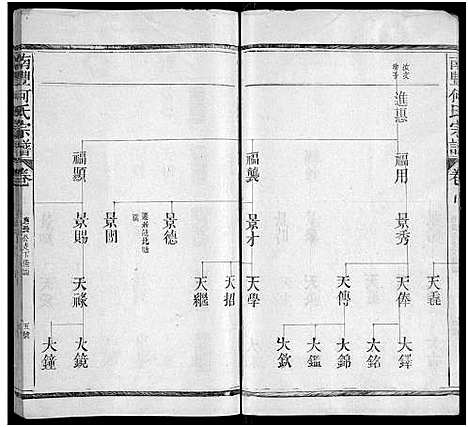 南豐何氏宗譜
卷
進惠
福用
福龔
福顯
景秀
景才
景德
景圈
景賜
天彞
天俸
天傳
天學
天招
天繼
天祿
大鐸
大銘
大錦
大鑑
大欽
大鏡
大鐘
南豐何氏宗譜
卷
五號